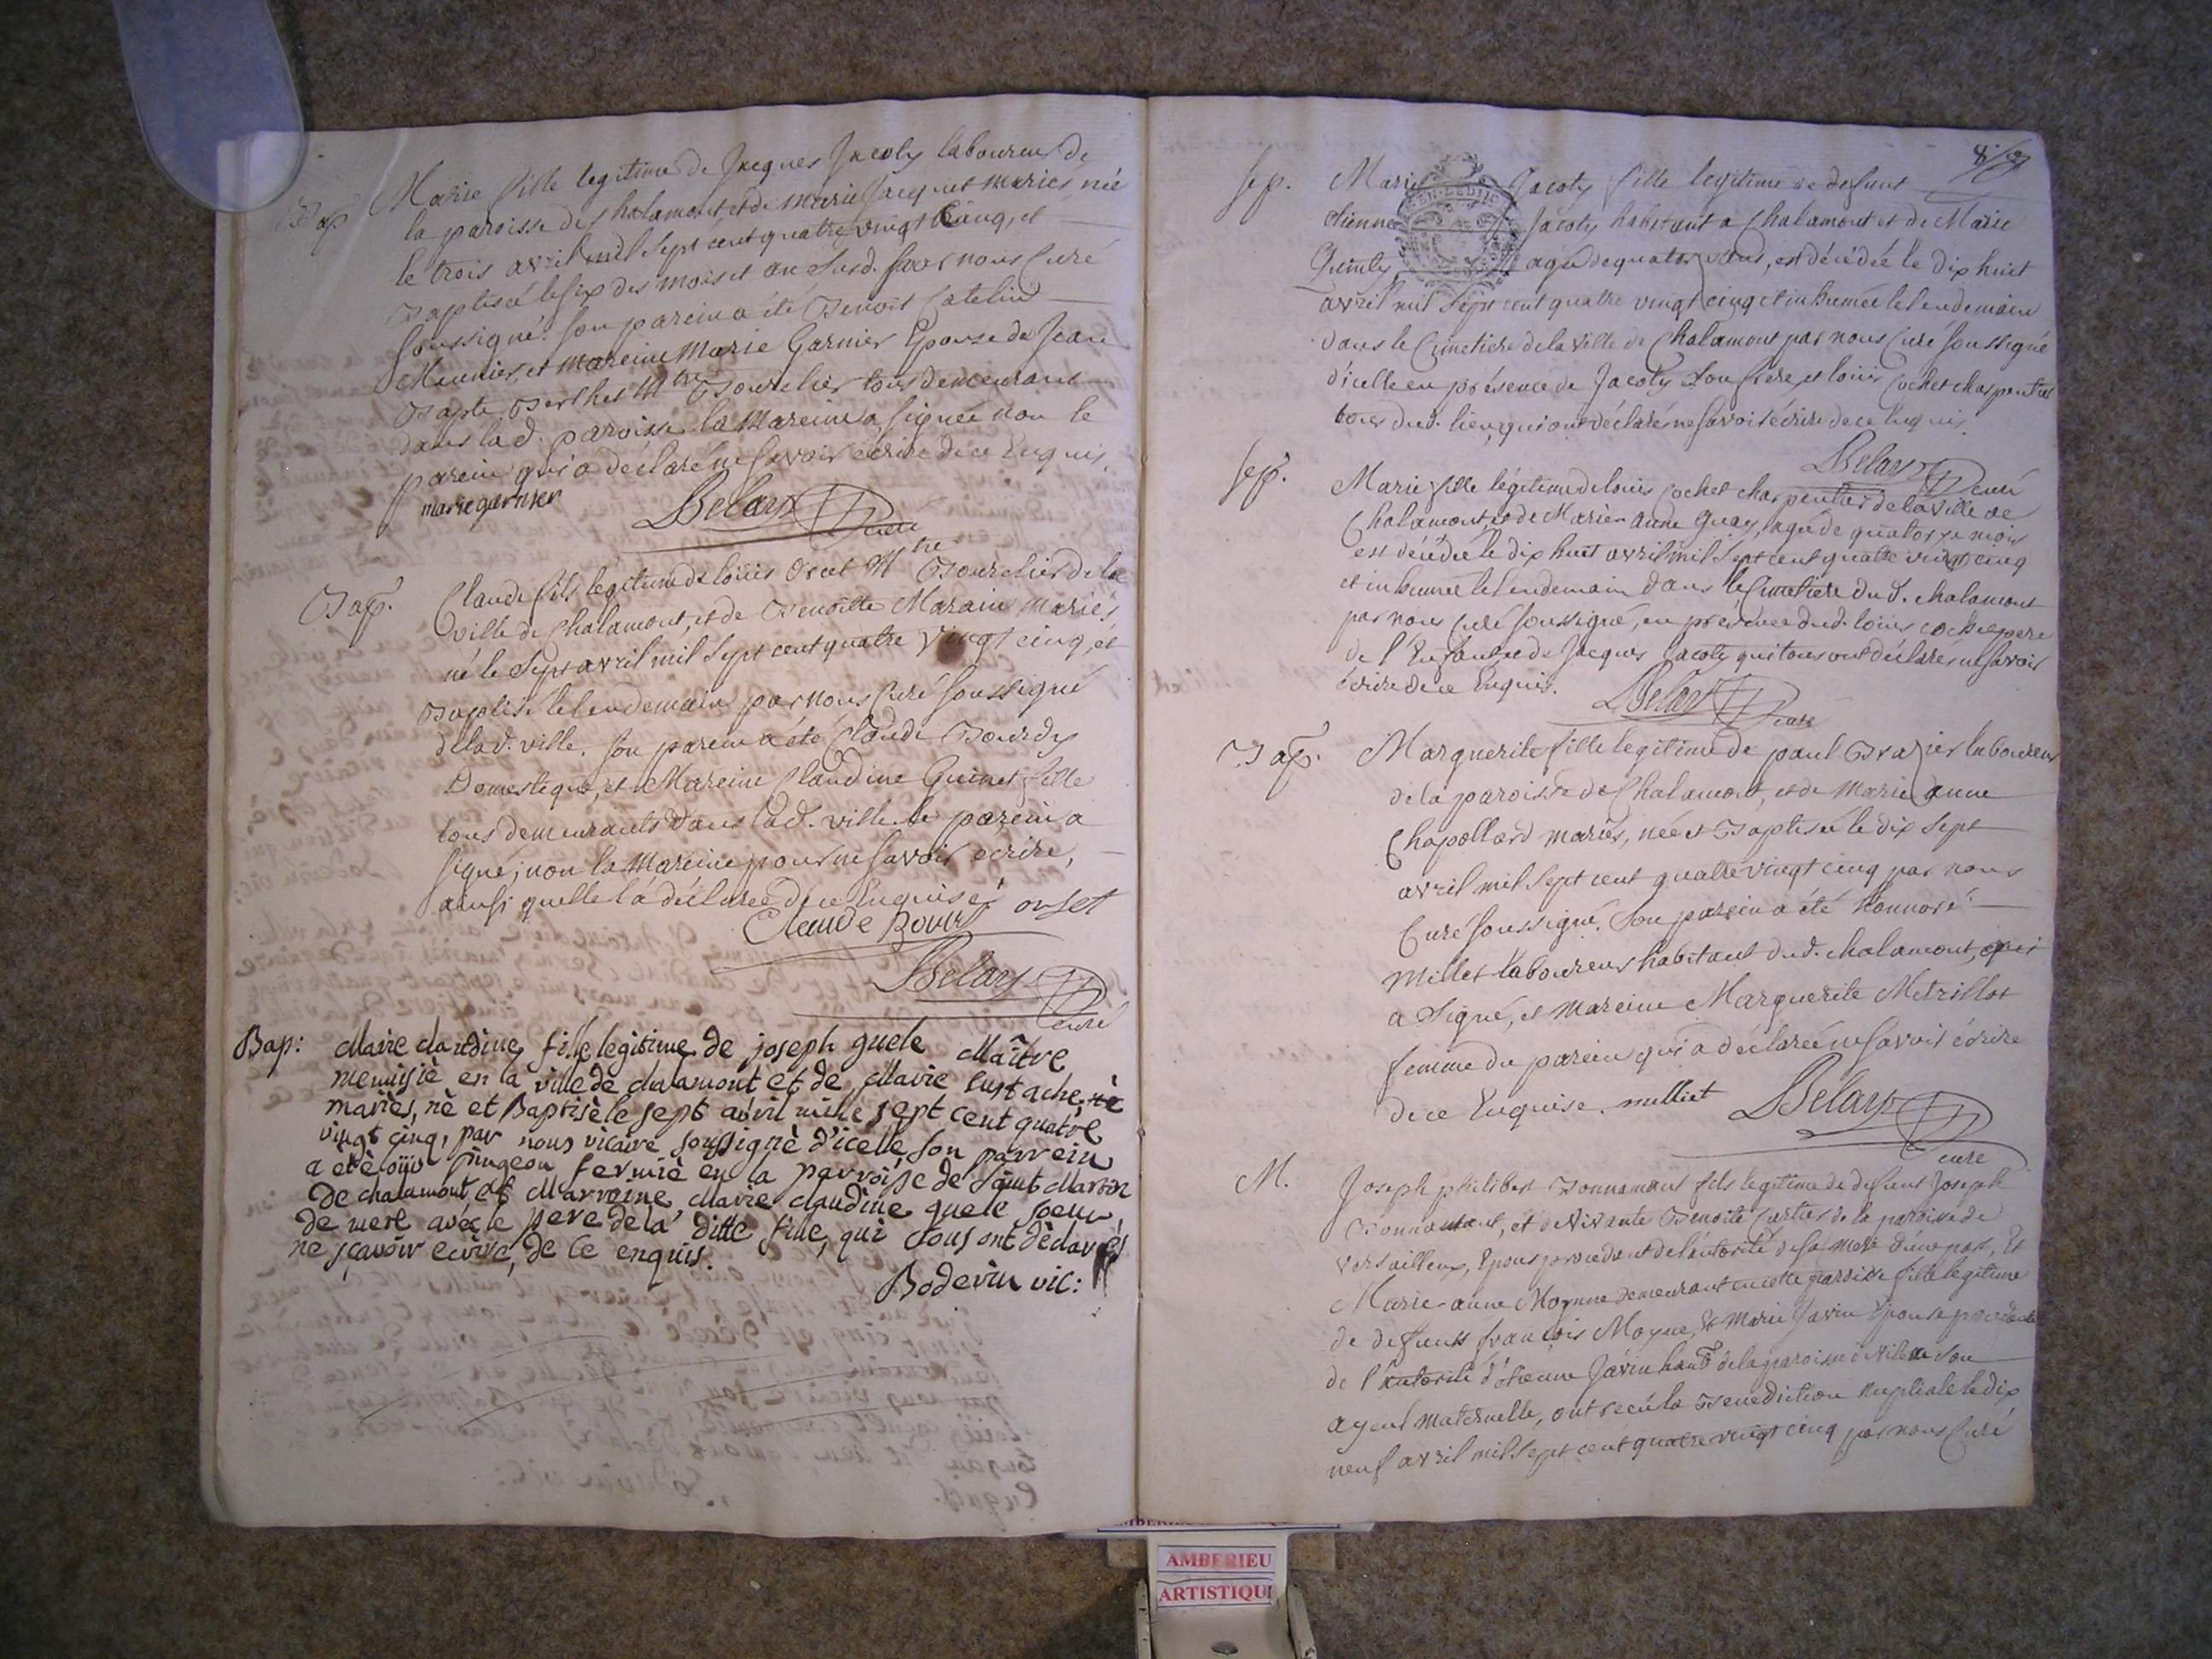 Bap
Marie fille legitime de Jacques Jacoty laboureur de
la paroisse de Chalamont, et de Marie Jacquet mariés née
le trois avril mil sept cent quatre vingt cinq, et
Baptisée le six des mois et an susd. par nous Curé
soussigné. Son parein a été Benoit Catelin
Meunier, et mareine Marie Garnier Epouse de Jean
Bapte. Berthet Mtre Bourelier tous demeurant
dans lad. paroisse la Mareine a signée non le
parein qui a déclaré ne savoir écrire de ce Enquis.
marie garnier
Belay curé
Bap.
Claude fils légitime de loüis Mtre Bourelier de la
ville de Chalamont, et de Benoitte Marain mariés
né le Sept avril mil sept cent quatre vingt cinq, et
Baptisé le lendemain par nous Curé soussigné
de lad. ville. Son parein a été Claude Bourdy
Domestique, et Mareine Claudine Guinet fille
tous demeurants dans lad. ville. le parein a
signé, non la Mareine pour ne savoir ecrire,
ainsi quelle l'a déclarée de ce Enquise
Claude
Belay curé
Bap: Marie claudine fille legitime de joseph guele Maître
menuisiè en la ville de chalamont et de Marie Eustache
mariès, nè et Baptisè le sept avril mille sept cent quatre
vingt cinq, par nous vicaire soussignè d'icelle, son parrein
a etè pingeon fermiè en la parroisse de saint Martin
de chalamont, et Marreine, Marie claudine guele soeur
de mere avec le pere de la ditte fille, qui tous ont dèclarés
ne sçavoir ecrire, de ce enquis.
Bodevin vic:
8
Sep.
Marie Jacoty fille legitime de defunt
Etienne Jacoty habitant a Chalamont et de Marie
Quinty agée de quatorze ans, est décédée le dix huit
avril mil sept cent quatre vingt cinq et inhumée le lendemain
dans le Cimetiere de la ville de Chalamont par nous Curé soussigné
d'icelle en présence de Jacoty son frere, et loüis Cochet charpentier
tous dud. lieu, qui ont déclarés ne savoir écrire de ce Enquis.
Belay curé
Sep.
Marie fille légitime de loüis Cochet charpentier de la ville de
Chalamont, et de Marie-anne Guay, agée de quatorze mois
est décédée le dix huit avril mil sept cent quatre vingt cinq
et inhumée le lendemain dans le Cimetiere dud. chalamont
par nous Curé soussigné, en présence dud. loüis cochet pere
de l'Enfant, et de Jacques Jacoty qui tous ont déclarés ne savoir
écrire de ce Enquis.
Belay curé
Bap.
Marguerite fille legitime de paul Brazier laboureur
de la paroisse de Chalamont, et de Marie anne
Chapollard mariés, née et Baptisée le dix sept
avril mil sept cent quatre vingt cinq par nous
Curé soussigné. Son parein a été honnoré
Millet laboureur habitant dud. chalamont, qui
a signé, et mareine Marguerite Metrillot
femme du parein qui a déclarée ne savoir écrire
de ce Enquise. milliet Belay
curé
M.
Joseph philibert Bonnamant fils legitime de defunt Joseph
Bonnamant, et de vivante Benoite Cartier de la paroisse de
versailleux, Epoux procedant de l'autorité de sa mere d'une part, Et
Marie-anne Moynne demeurant en cette paroisse fille legitime
de defunts françois Moyne, & Marie Javin Epouse procedante
de l'autorité d'Etienne Javin habt. de la paroisse de son
ayeul maternelle, ont recu la Benediction nuptiale le dix
neuf avril mil sept cent quatre vingt cinq par nous Curé
AMBERIEU
ARTISTIQU